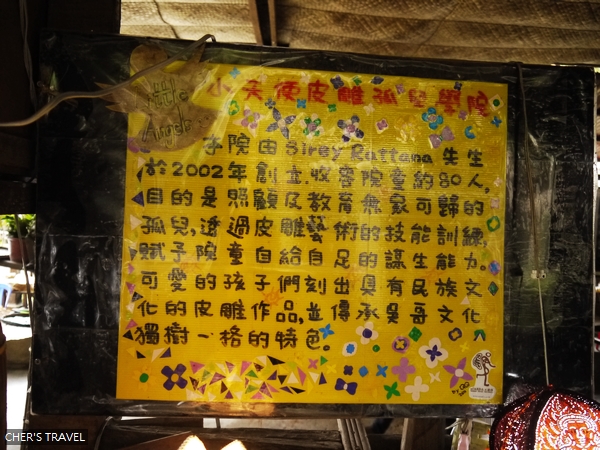 Little Angels
小天使皮雕孤兒學院
子院由Sirey Rattana先生
於2002年創立.收容院童約80人,
目的是照顧及教育無家可歸的
孤兒,透過皮雕藝術的技能訓練,
賦予院童自給自足的謀生能力。
可愛的孩子們刻出具有民族文
化的皮雕作品,並傳承吳哥文化
獨樹一格的特色。
CHER'S TRAVEL